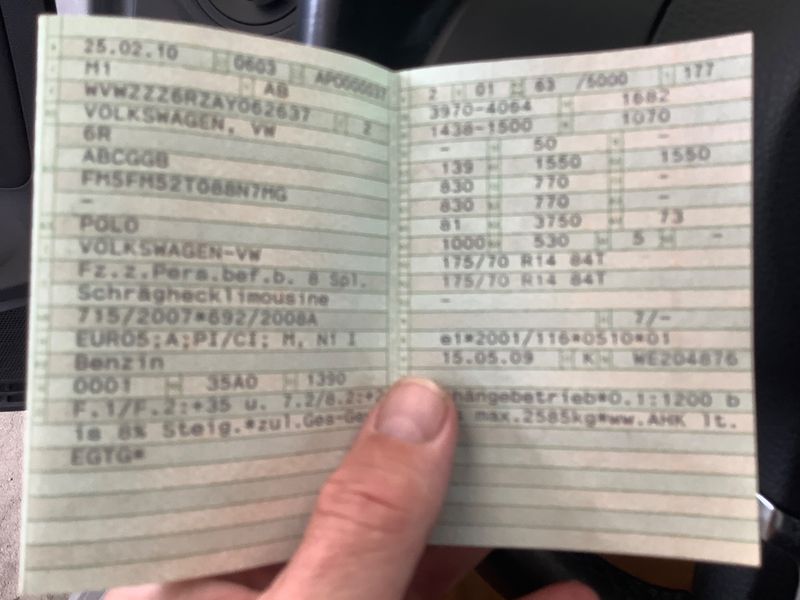 25.02.10 0603 AP0000037
M1 AB
WVWZZZ6RZAY062637 2
VOLKSWAGEN, VW
6R
ABCGGB
FM5FM52T088N7MG
–
POLO
VOLKSWAGEN-VW
Fz.z.Pers.bef.b. 8 Spl.
Schräghecklimousine
715/2007*692/2008A
EURO5;A;PI/CI; M, N1 I
Benzin
0001 35A0 1390
F.1/F.2:+35 u. 7.2/8.2:+ hängebetrieb*0.1:1200 b
is 8% Steig.*zul.Ges-Ge max.2585kg*ww.AHK lt.
EGTG*
2 01 63 /5000 177
3970-4064 1682
1438-1500 1070
– 50 –
139 1550 1550
830 770 –
830 770 –
81 3750 73
1000 530 5 –
175/70 R14 84T
175/70 R14 84T
–
7/–
e1*2001/116*0510*01
15.05.09 K WE204876